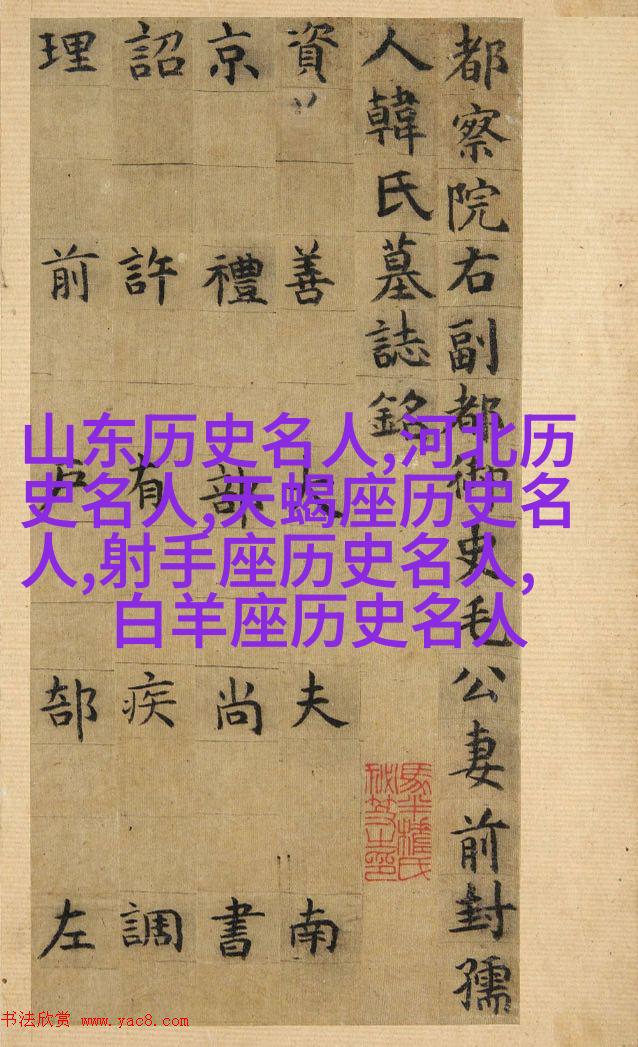 都察院右副都御史毛公妻前封孺
人韓氏墓誌銘
資善大夫南
京禮部尚書
詔許有疾調
理前戶部左
山东历史名人,河北历
史名人,天蝎座历史名
人,射手座历史名人,
白羊座历史名人
书法欣赏 www.yac8.com